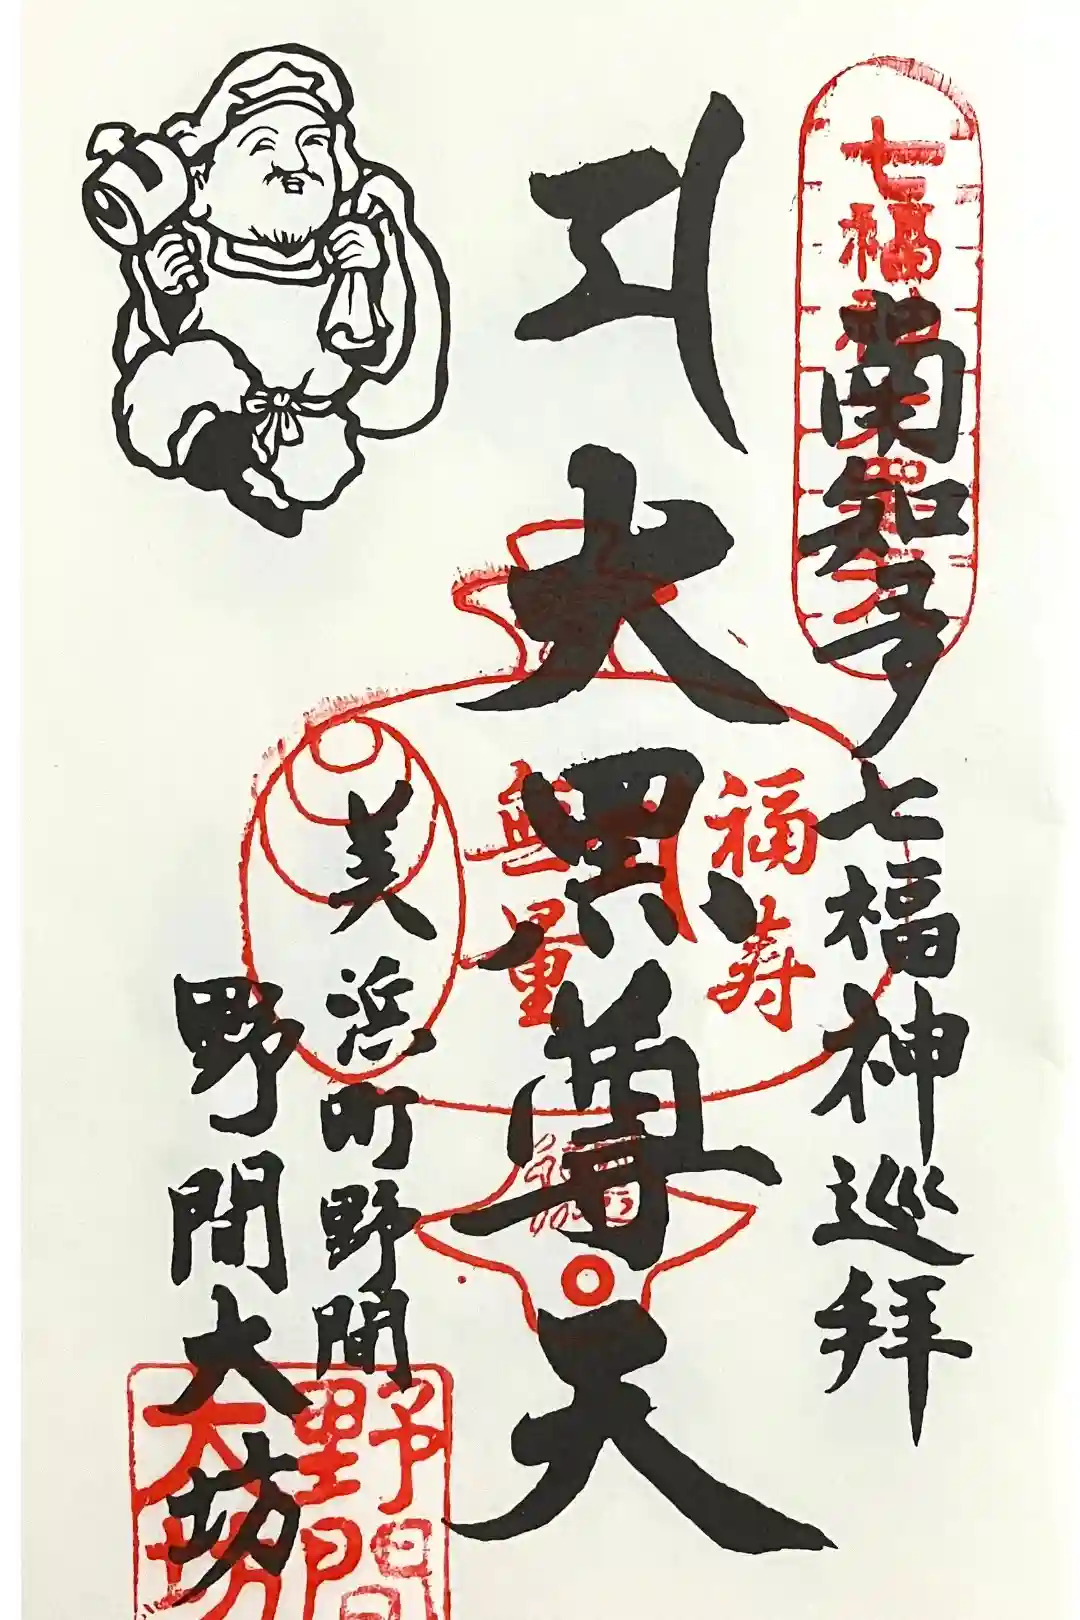 南知多七福神巡拝
大黒尊天
美浜町野間
野間大坊
七福神
福寿
無量
野間
大坊